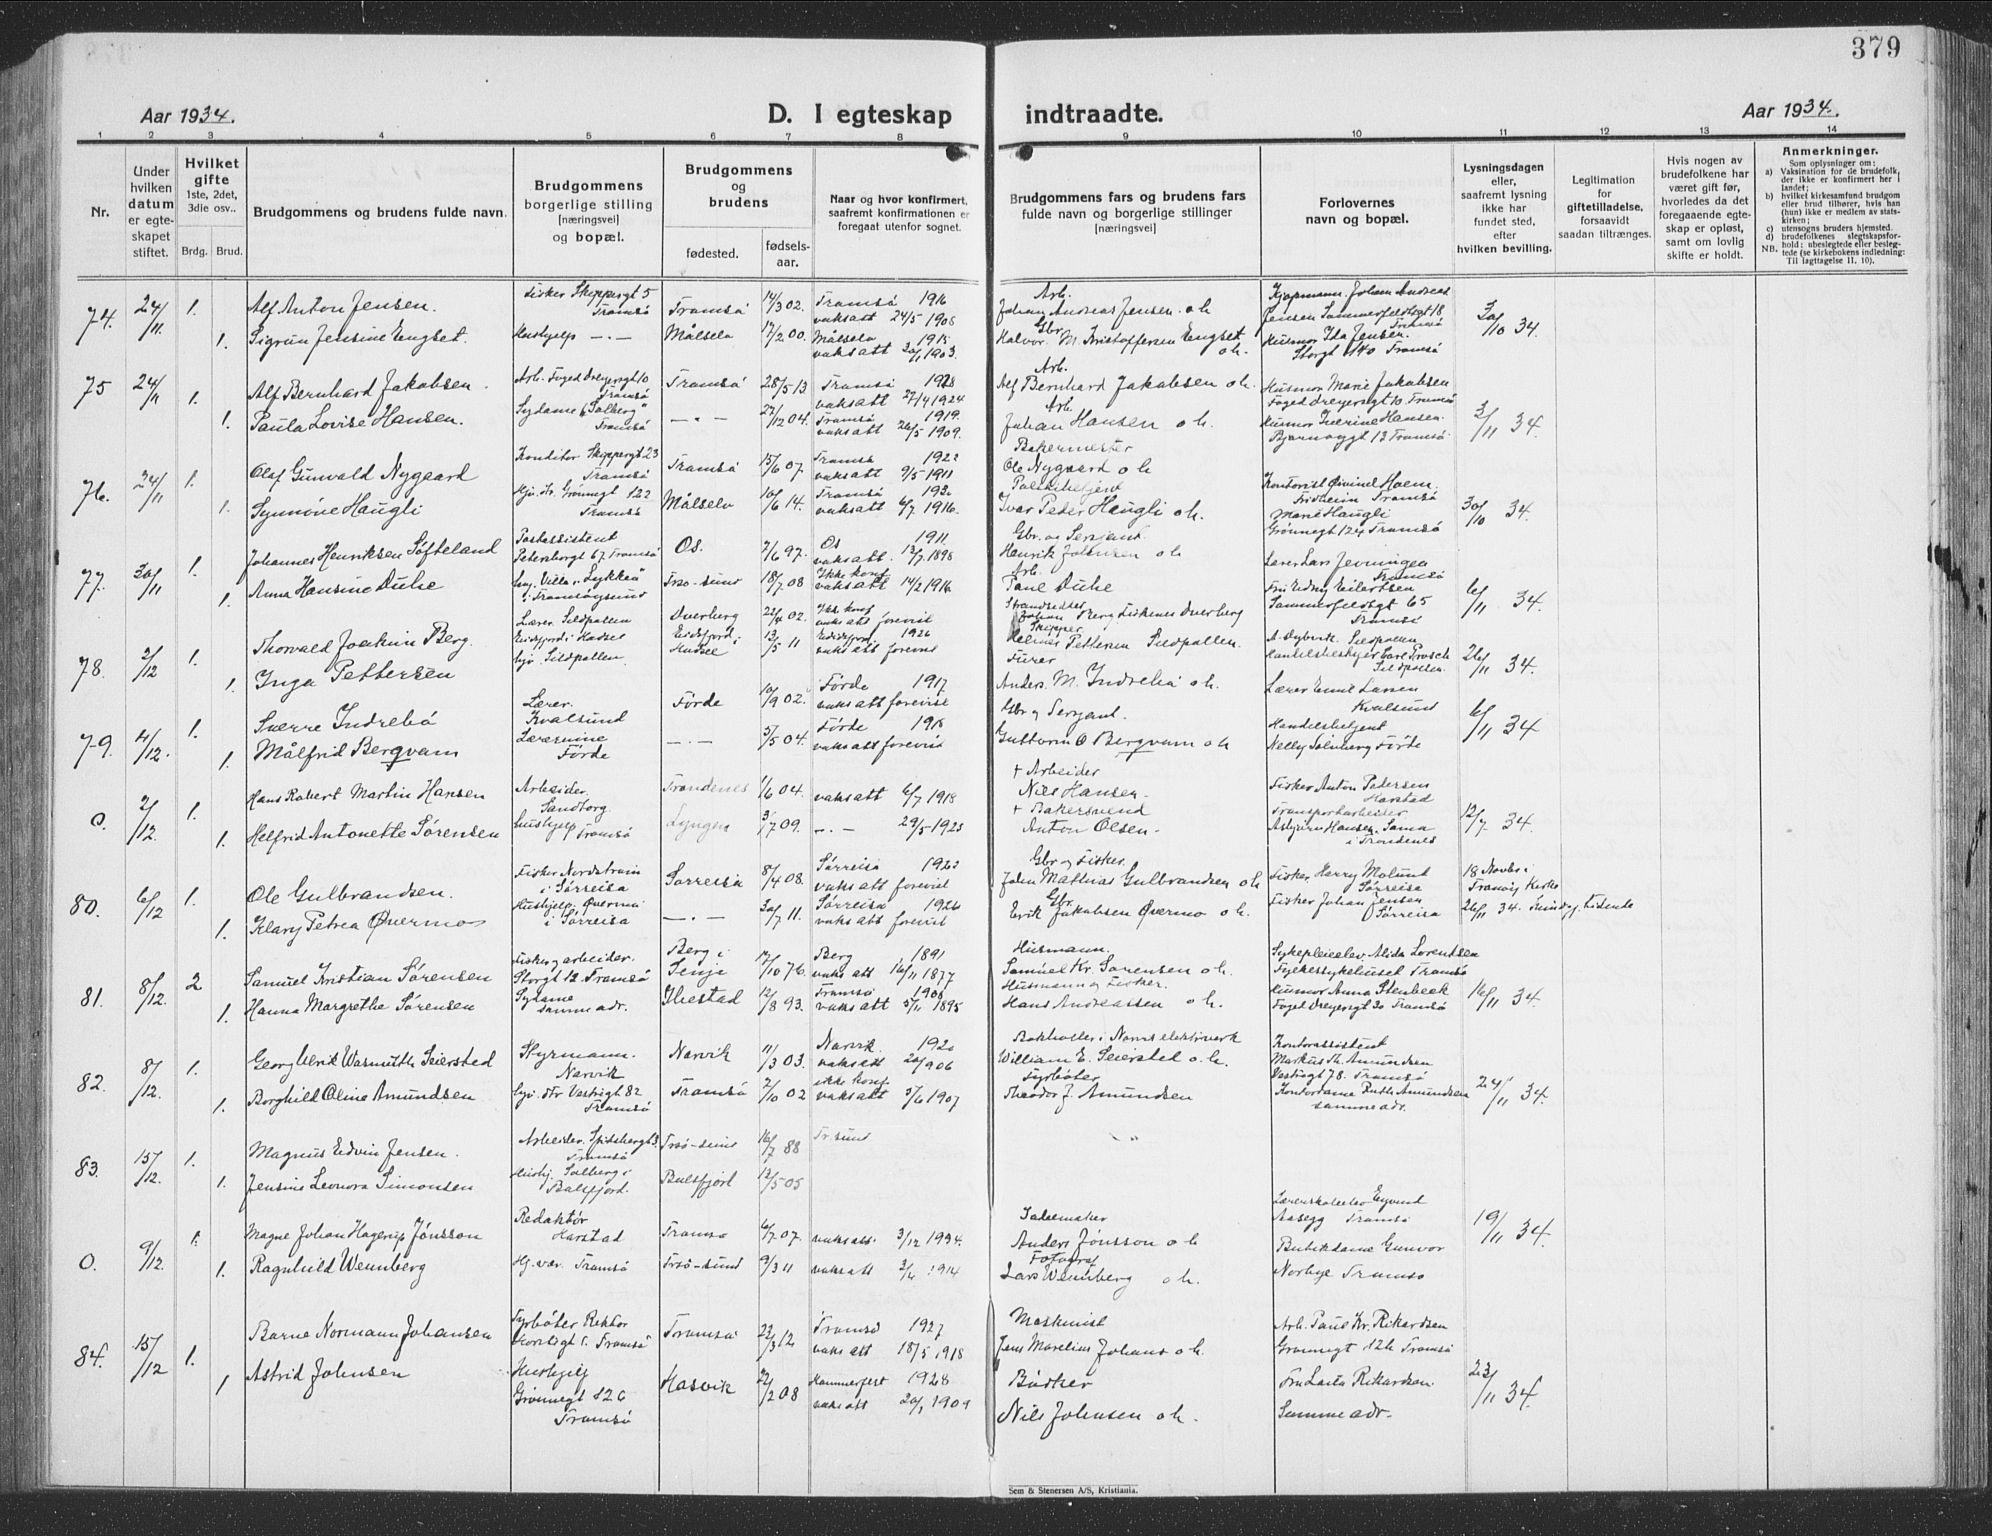 379
Aar 1934.
D. I egteskap indtraadte.
Aar 1934.
1 2 3 4 5 6 7 8 9 10 11 12 13 14
Nr.
Under hvilken datum er egteskapet stiftet.
Hvilket gifte
1ste, 2det, 3die osv..
Brdg. Brud.
Brudgommens og brudens fulde navn.
Brudgommens borgerlige stilling [næringsvei] og bopæl.
Brudgommens og brudens
fødested.
fødselsaar.
Naar og hvor konfirmert, saafremt konfirmationen er foregaat utenfor sognet.
Brudgommens fars og brudens fars fulde navn og borgerlige stillinger [næringsvei]
Forlovernes navn og bopæl.
Lysningsdagen eller, saafremt lysning ikke har fundet sted, efter hvilken bevilling.
Legitimation for giftetilladelse, forsaavidt saadan tiltrænges.
Hvis nogen av brudefolkene har været gift før, hvorledes da det foregaaende egteskap er opløst, samt om lovlig skifte er holdt.
Anmerkninger.
Som oplysninger om:
a) Vaksination for de brudefolk, der ikke er konfirmert her i landet;
b) hvilket kirkesamfund brudgom eller brud tilhører, hvis han (hun) ikke er medlem av statskirken;
c) utensogns bruders hjemsted.
d) brudefolkenes slegtskapsforhold: ubeslegtede eller beslegtede (se kirkebokens indledning:
NB. Til Iagttagelse II. 10).
74. 24/11 1. Alf Anton Jensen. Fisker Skippergt 5 Tromsø Tromsø 14/3 02. Tromsø 1916 vaks att 24/5 1908 Arb. Johan Andreas Jensen o.h. Kjøpmann Johan Andreas Jensen Sommerfeldtgt 18 Tromsø 30/10 34.
1. Sigrun Jensine Engset. Hushjelp -"- Målselv 17/2 00. Målselv 1915 vaks att 30/1 1903. Gbr. Halvor M. Kristoffersen Engset o.h. Husmor Ida Jensen. Storgt 140 Tromsø
75 24/11 1. Alf Bernhard Jakobsen. Arb. Foged Dreyersgt 10 Tromsø Tromsø 28/5 13 Tromsø 1928 vaks att 27/4 1924 Arb. Alf Bernhard Jakobsen o.h. Husmor Marie Jakobsen Foged Dreyersgt 10 Tromsø 3/11 34.
1. Paula Lovise Hansen. Sydame "Solberg" Tromsø -"- 27/12 04. Tromsø 1919. vaks att 26/5 1909. Arb. Johan Hansen o.h. Tromsø
76. 24/11 1. Olaf Gunvald Nygaard Konditor Skippergt 23 Tromsø Tromsø 15/6 07. Tromsø 1922 vaks att 9/5 1911 Bakermester Ole Nygaard o h Kontorist Øivind Holm. Fridheim Tromsø 30/10 34.
1. Synnøve Haugli Grønnegt 122 Tromsø Målselv 10/6 14. Tromsø vaks att 6/7 1916. Politibetjent Ivar Peder Haugli o.h. Marie Haugli Grønnegt 124 Tromsø
77. 30/11 1. Johannes Henriksen Søfteland Postassistent Petersborggt 67 Tromsø Os. 7/6 97. Os 1911. vaks att. 12/7 1898 Gbr. og Sersjant. Henrik Johnsen o h Lærer Lars Jenningen Tromsø 6/11 34.
1. Anna Hansine Duhe Villa "Lykken" i Tromsøysund Tsø-sund 18/7 08 Ikke konf. vaks att 14/2 1916 Arb. Paul Duhe Sommerfeldtgt 65 Tromsø
78. 2/12 1. Thorvald Joakim Berg. Lærer Sildpollen Eidsfjord i Hadsel Dverberg 22/4 02. vaks att forevist Strandsidder Johan Berg Fiskenes Dverberg Sildpollen 26/11 34.
1. Inga Pettersen Sildpollen. Eidsfjord i Hadsel 13/5 11 Eidsfjord. 1926 vaks att forevist Skipper Pettersen Sildpollen. Sildpollen.
79. 4/12. 1. Sverre Indrebø Lærer. Kvalsund Førde 10/9 02. Førde 1917 vaks att forevist Anders. M. Indrebø o.h. Lærer Emil Larsen Kvalsund 6/11 34
1. Målfrid Bergvam Lærerinne Førde -"- 5/5 04. Førde 1918 vaks att forevist Gbr og Sersjant. Guttorm O Bergvam o h Handelsbetjent Nelly Solnberg Førde
0. 2/12. 1. Hans Robert Martin Hansen Arbeider. Sandtorg Trondenes 1/6 04. vaks att 6/7 1918 + Arbeider Nils Hansen. Fisker Anton Pedersen Harstad 12/7 34.
1. Helfrid Antonette Sørensen Hushjelp Tromsø Lyngen 3/7 09. -"- 29/5 1923 + Bakersvend Anton Olsen. Transportarbeider Asbjørn Hansen. Sama i Trondenes
80. 6/12 1. Ole Gulbrandsen. Fisker Nordstraum i Sørreisa Sørreisa 8/4 08. Sørreisa vaks att forevist Gbr og Fisker. John Mathias Gulbrandsen o h Fisker Harry Moland Sørreisa 18 Novbr i Tranøy Kirke
1. Klary Petrea Øvermo Hushjelp. Øvermo i Sørreisa -"- 30/7 11. Sørreisa 1926 vaks att forevist Gbr. Erik Jakobsen Øvermo o.h. Fisker Johan Jensen Sørreisa 26/11 34.
81. 8/12. 2 Samuel Kristian Sørensen Fisker og arbeider. Storgt 12 Tromsø Berg i Senja 17/10 76. Berg 1891 vaks att 16/11 1877 Husmann. Samuel Kr. Sørensen o.h. Sykepleieelev Alida Lorentsen Fylkessykehuset Tromsø 16/11 34.
1. Hanna Margrethe Sørensen Sydame samme adr. Ibestad 12/8 93. Tromsø 1908 vaks att 5/11 1895 Husmann og Fisker. Hans Andreassen o h. Husmor Anna Stenbeck Foged Dreyersgt 30 Tromsø
82. 8/12. 1. Georg Ulrik Wasmuth Seiersted Styrmann. Narvik Narvik 11/3 03. Narvik. 1920 vaks att 20/9 06 William E. Seiersted o.h. Kontorassistent Markus Th. Amundsen Vestregt 78. Tromsø 24/11 34.
1. Borghild Oline Amundsen Vestregt 82 Tromsø Tromsø 2/10 02 ikke konf vaks att 5/6 1907 Fyrbøter Theodor J. Amundsen Kontordame Ruth Amundsen samme adr.
83. 15/12. 1. Magnus Edvin Jensen. Arbeider. Spitsbergt 3. Tromsø Tsø-sund 16/7 88 Tr. sund
1. Jensine Leonora Simonsen Hushj. Solberg i Balsfjord. Balsfjord 12/5 05
0. 9/12. 1. Magne Johan Hagerup Jónsson Redaktør Harstad Tromsø 6/7 07. vaks att 3/12 1934. Sadelmaker Anders Jónsson o h Lærerskoleelev Eyvind Aasegg Tromsø 19/11 34.
1. Ragnhild Wennberg Hj. vær. Tromsø Tsø-sund 9/3 11 vaks att 3/6 1914 Fotograf Lars Wennberg o h. Butikdame Gunvor Norbye Tromsø
84. 15/12 1. Barne Normann Johansen Fyrbøter Rektor Horstigt 1. Tromsø Tromsø 22/3 12 Tromsø 1927 vaks att 18/5 1918 Maskinist Jens Marelius Johans o.h. Arb. Paul Kr. Rikardsen Grønnegt 126 Tromsø 23/11 34.
1 Astrid Johnsen Hushjelp Grønnegt 126 Tromsø Hasvik 22/2 08 Hammerfest 1928 vaks att 20/1 1909 Bødker Nils Johnsen o.h. Fru Laila Rikardsen. Samme adr.
Sem & Stenersen A/S, Kristiania.